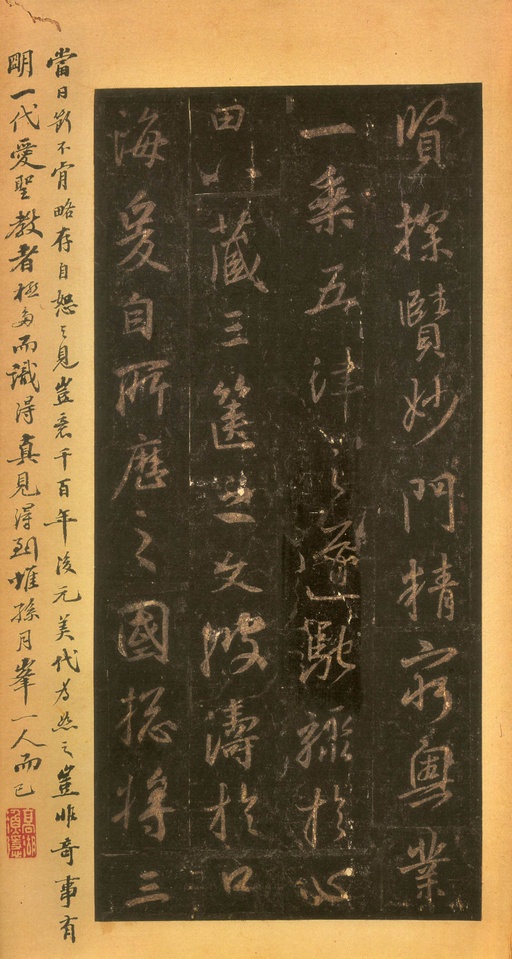 賢探賾妙門精窮奧業
一乘五律之道馳驟於心
田八藏三篋之文波濤於口
海爰自所歷之國揔將三
當日斷不肯略存自恕之見豈意千百年後元美代為恕之豈非奇事有
明一代愛聖教者極多而識得真見得到惟孫月峯一人而已